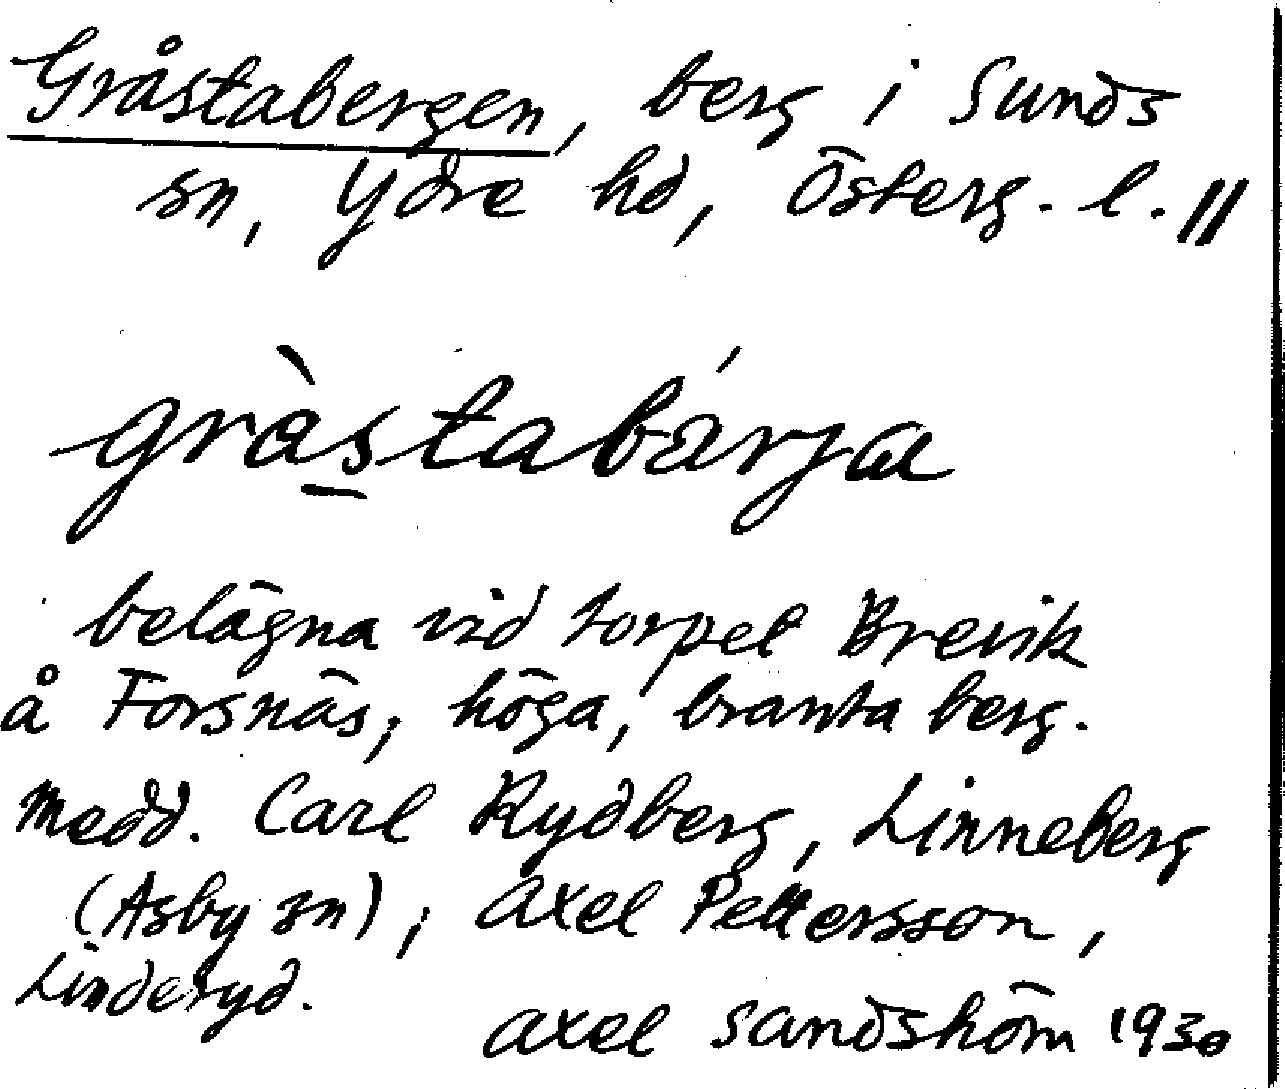 Gråstabergen, berg i Sunds
sn, Ydre hd, Österg. l. //
gràstabárja
belägna vid torpet Brevik
å Forsnäs; höga, branta berg.
Medd. Carl Rydberg, Linneberg
(Asby sn); Axel Pettersson,
Linderyd.
Axel Sandström 1930